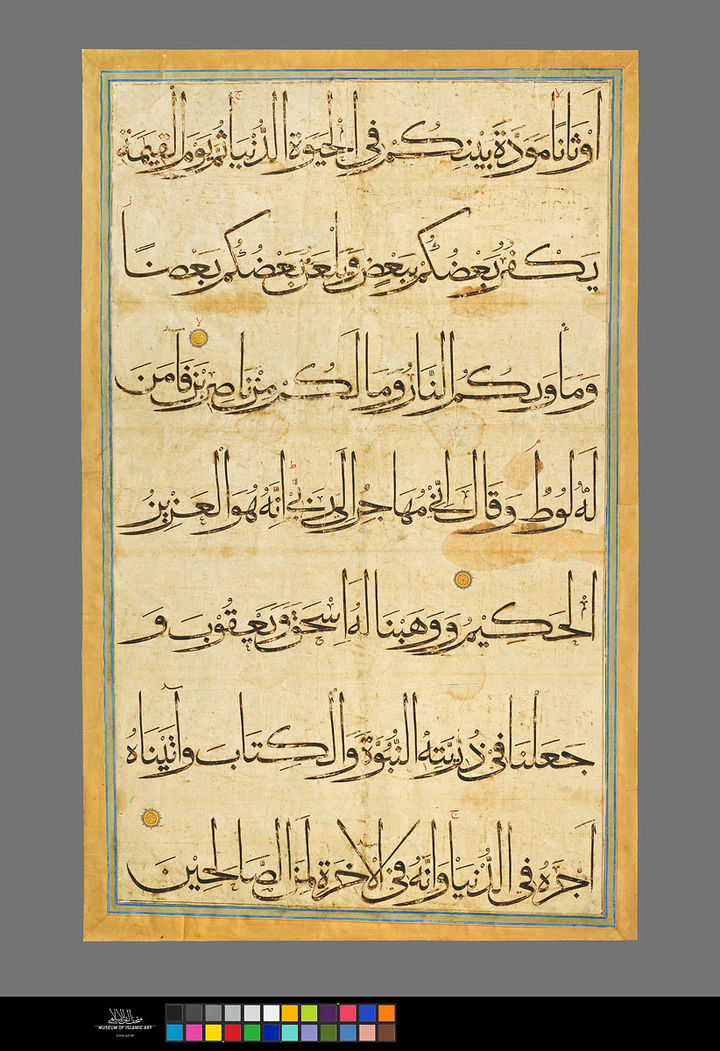 أَوْثَانًا مَوَدَّةَ بَيْنِكُمْ فِي الْحَيَوةِ الدُّنْيَا ثُمَّ يَوْمَ الْقِيمَةِ
يَكْفُرُ بَعْضُكُمْ بِبَعْضٍ وَيَلْعَنُ بَعْضُكُمْ بَعْضًا
وَمَأْوَيكُمُ النَّارُ وَمَا لَكُمْ مِنْ نَاصِرِينَ فَآمَنَ
لَهُ لُوطٌ وَقَالَ إِنِّي مُهَاجِرٌ إِلَى رَبِّي إِنَّهُ هُوَ الْعَزِيزُ
الْحَكِيمُ وَوَهَبْنَا لَهُ إِسْحَقَ وَيَعْقُوبَ وَ
جَعَلْنَا فِي ذُرِّيَّتِهِ النُّبُوَّةَ وَالْكِتَابَ وَآتَيْنَاهُ
أَجْرَهُ فِي الدُّنْيَا وَإِنَّهُ فِي الْآخِرَةِ لَمِنَ الصَّالِحِينَ
متحف الفن الإسلامي
MUSEUM OF ISLAMIC ART
DOHA QATAR